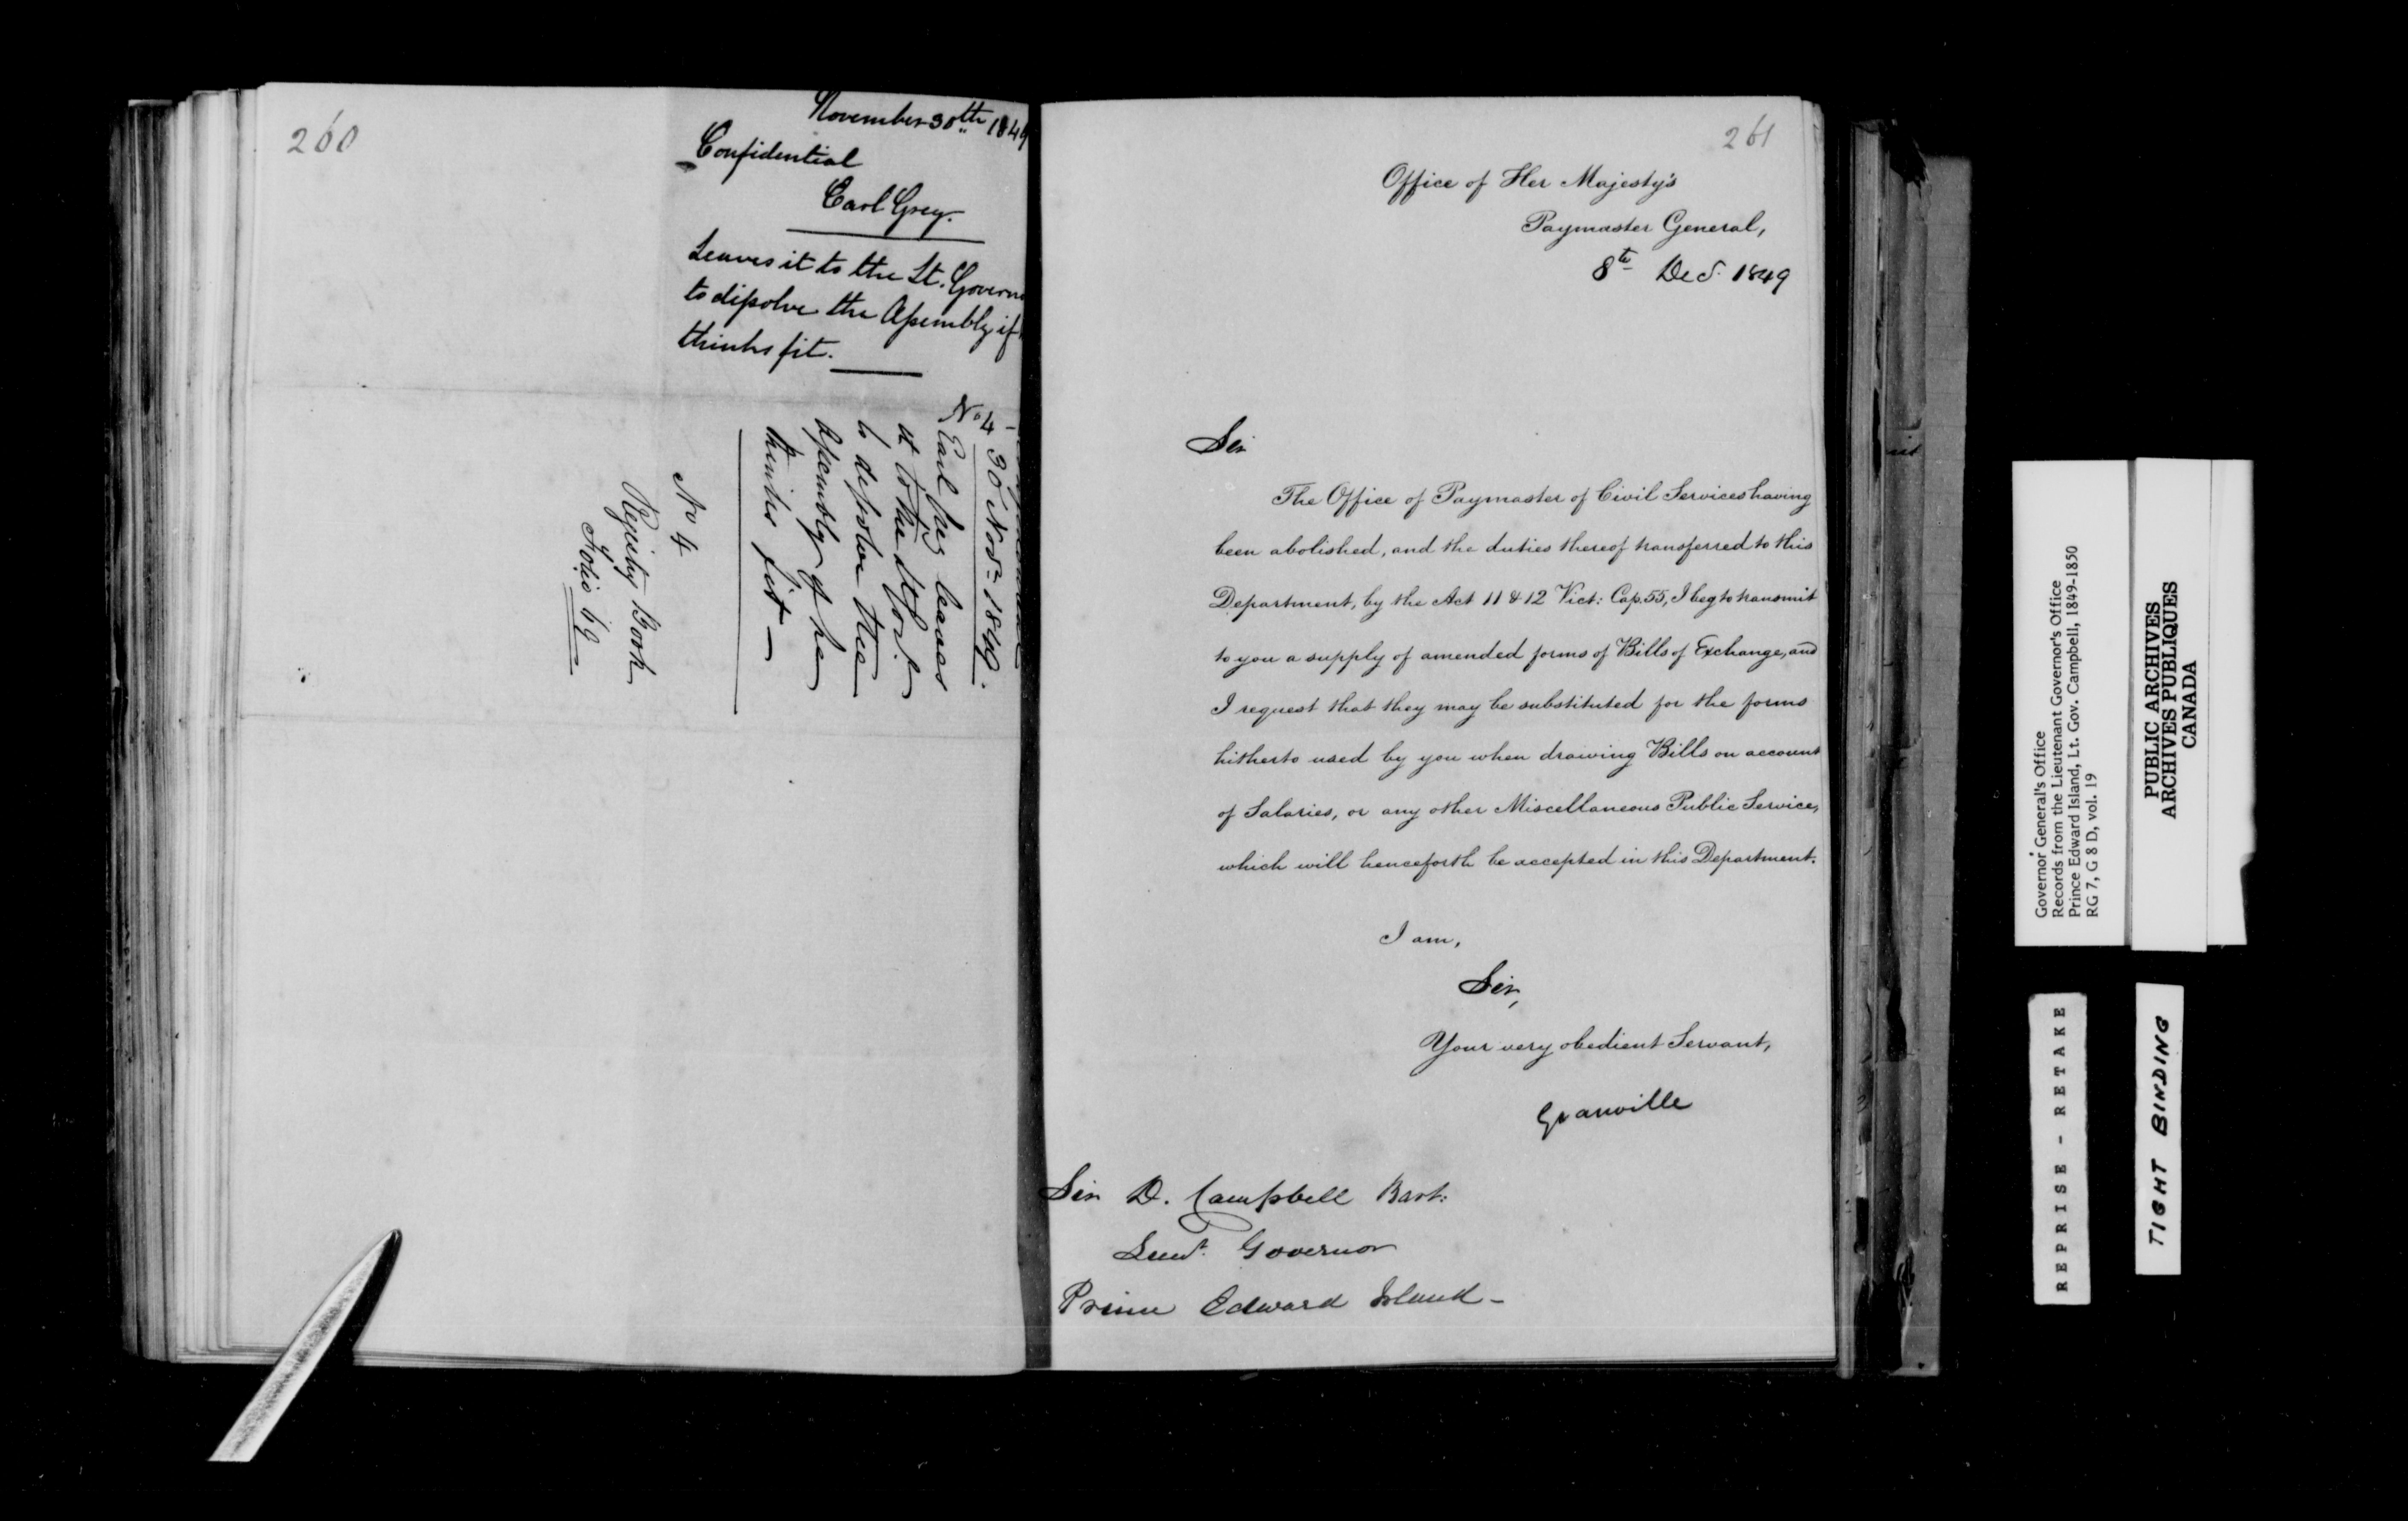 260
November 30th 1849
Confidential
Earl Grey.
Leaves it to the Lt. Governo
to dissolve the Assembly if
thinks fit.
No 4 -
30 Novr 1849.
Earl Grey leaves
it to the Lt Govr
to dissolve the
Assembly if he
thinks fit -
No 4
Registry Book
Folio 69
261
Office of Her Majesty's
Paymaster General,
8th Decr. 1849
Sir
The Office of Paymaster of Civil Services having
been abolished, and the duties thereof transferred to this
Department, by the Act 11 & 12 Vict: Cap. 55, I beg to transmit
to you a supply of amended forms of Bills of Exchange, and
I request that they may be substituted for the forms
hitherto used by you when drawing Bills on account
of Salaries, or any other Miscellaneous Public Service,
which will henceforth be accepted in this Department.
I am,
Sir,
Your very obedient Servant,
Granville
Sir D. Campbell Bart:
Lieut. Governor
Prince Edward Island -
Governor General's Office
Records from the Lieutenant Governor's Office
Prince Edward Island, Lt. Gov. Campbell, 1849-1850
RG 7, G 8 D, vol. 19
PUBLIC ARCHIVES
ARCHIVES PUBLIQUES
CANADA
REPRISE - RETAKE
TIGHT BINDING